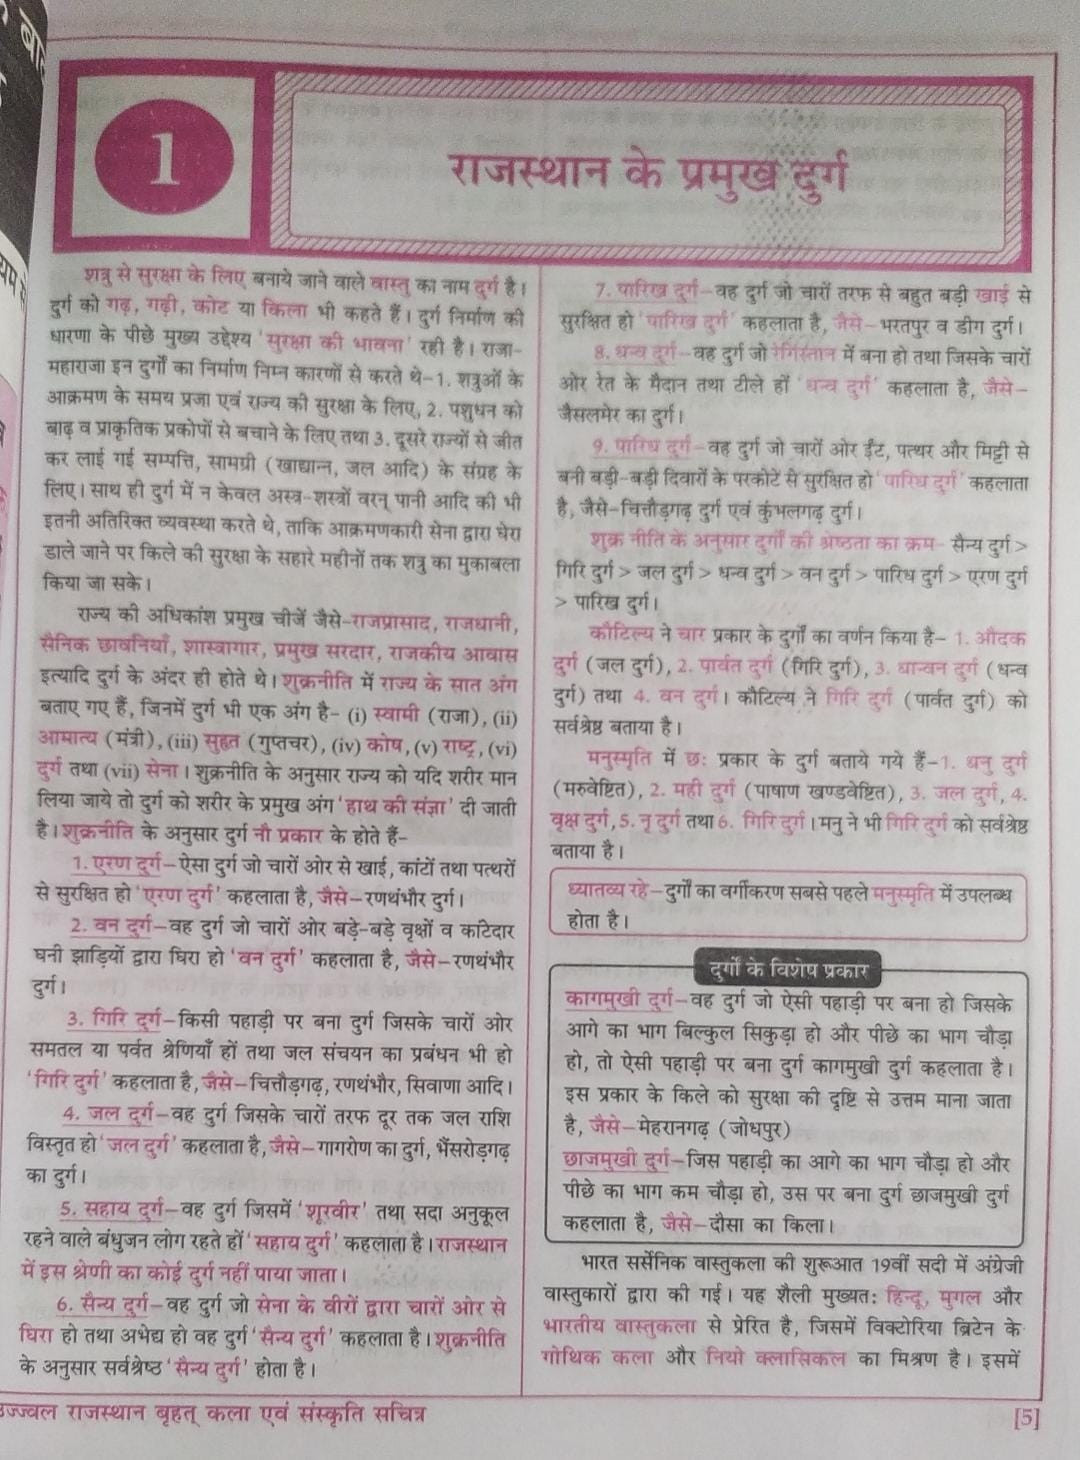 1
राजस्थान के प्रमुख दुर्ग
शत्रु से सुरक्षा के लिए बनाये जाने वाले वास्तु का नाम दुर्ग है।
दुर्ग को गढ़, गढ़ी, कोट या किला भी कहते हैं। दुर्ग निर्माण की
धारणा के पीछे मुख्य उद्देश्य 'सुरक्षा की भावना' रही है। राजा-
महाराजा इन दुर्गों का निर्माण निम्न कारणों से करते थे-1. शत्रुओं के
आक्रमण के समय प्रजा एवं राज्य की सुरक्षा के लिए, 2. पशुधन को
बाढ़ व प्राकृतिक प्रकोपों से बचाने के लिए तथा 3. दूसरे राज्यों से जीत
कर लाई गई सम्पत्ति, सामग्री (खाद्यान्न, जल आदि) के संग्रह के
लिए। साथ ही दुर्ग में न केवल अस्त्र-शस्त्रों वरन् पानी आदि की भी
इतनी अतिरिक्त व्यवस्था करते थे, ताकि आक्रमणकारी सेना द्वारा घेरा
डाले जाने पर किले की सुरक्षा के सहारे महीनों तक शत्रु का मुकाबला
किया जा सके।
राज्य की अधिकांश प्रमुख चीजें जैसे-राजप्रासाद, राजधानी,
सैनिक छावनियाँ, शास्त्रागार, प्रमुख सरदार, राजकीय आवास
इत्यादि दुर्ग के अंदर ही होते थे। शुक्रनीति में राज्य के सात अंग
बताए गए हैं, जिनमें दुर्ग भी एक अंग है- (i) स्वामी (राजा), (ii)
आमात्य (मंत्री), (iii) सुहृत (गुप्तचर), (iv) कोष, (v) राष्ट्र, (vi)
दुर्ग तथा (vii) सेना। शुक्रनीति के अनुसार राज्य को यदि शरीर मान
लिया जाये तो दुर्ग को शरीर के प्रमुख अंग 'हाथ की संज्ञा' दी जाती
है। शुक्रनीति के अनुसार दुर्ग नौ प्रकार के होते हैं-
1. एरण दुर्ग-ऐसा दुर्ग जो चारों ओर से खाई, कांटों तथा पत्थरों
से सुरक्षित हो 'एरण दुर्ग' कहलाता है, जैसे-रणथंभौर दुर्ग।
2. वन दुर्ग-वह दुर्ग जो चारों ओर बड़े-बड़े वृक्षों व कांटेदार
घनी झाड़ियों द्वारा घिरा हो 'वन दुर्ग' कहलाता है, जैसे-रणथंभौर
दुर्ग।
3. गिरि दुर्ग-किसी पहाड़ी पर बना दुर्ग जिसके चारों ओर
समतल या पर्वत श्रेणियाँ हों तथा जल संचयन का प्रबंधन भी हो
'गिरि दुर्ग' कहलाता है, जैसे-चित्तौड़गढ़, रणथंभौर, सिवाणा आदि।
4. जल दुर्ग-वह दुर्ग जिसके चारों तरफ दूर तक जल राशि
विस्तृत हो 'जल दुर्ग' कहलाता है, जैसे-गागरोण का दुर्ग, भैंसरोड़गढ़
का दुर्ग।
5. सहाय दुर्ग-वह दुर्ग जिसमें 'शूरवीर' तथा सदा अनुकूल
रहने वाले बंधुजन लोग रहते हों 'सहाय दुर्ग' कहलाता है। राजस्थान
में इस श्रेणी का कोई दुर्ग नहीं पाया जाता।
6. सैन्य दुर्ग-वह दुर्ग जो सेना के वीरों द्वारा चारों ओर से
घिरा हो तथा अभेद्य हो वह दुर्ग 'सैन्य दुर्ग' कहलाता है। शुक्रनीति
के अनुसार सर्वश्रेष्ठ 'सैन्य दुर्ग' होता है।
7. पारिख दुर्ग-वह दुर्ग जो चारों तरफ से बहुत बड़ी खाई से
सुरक्षित हो 'पारिख दुर्ग' कहलाता है, जैसे-भरतपुर व डीग दुर्ग।
8. धन्व दुर्ग-वह दुर्ग जो रेगिस्तान में बना हो तथा जिसके चारों
ओर रेत के मैदान तथा टीले हों 'धन्व दुर्ग' कहलाता है, जैसे-
जैसलमेर का दुर्ग।
9. पारिध दुर्ग-वह दुर्ग जो चारों ओर ईंट, पत्थर और मिट्टी से
बनी बड़ी-बड़ी दिवारों के परकोटे से सुरक्षित हो 'पारिध दुर्ग' कहलाता
है, जैसे-चित्तौड़गढ़ दुर्ग एवं कुंभलगढ़ दुर्ग।
शुक्र नीति के अनुसार दुर्गों की श्रेष्ठता का क्रम- सैन्य दुर्ग >
गिरि दुर्ग > जल दुर्ग > धन्व दुर्ग > वन दुर्ग > पारिध दुर्ग > एरण दुर्ग
> पारिख दुर्ग।
कौटिल्य ने चार प्रकार के दुर्गों का वर्णन किया है- 1. औदक
दुर्ग (जल दुर्ग), 2. पार्वत दुर्ग (गिरि दुर्ग), 3. धान्वन दुर्ग (धन्व
दुर्ग) तथा 4. वन दुर्ग। कौटिल्य ने गिरि दुर्ग (पार्वत दुर्ग) को
सर्वश्रेष्ठ बताया है।
मनुस्मृति में छ: प्रकार के दुर्ग बताये गये हैं-1. धनु दुर्ग
(मरुवेष्टित), 2. मही दुर्ग (पाषाण खण्डवेष्टित), 3. जल दुर्ग, 4.
वृक्ष दुर्ग, 5. नृ दुर्ग तथा 6. गिरि दुर्ग। मनु ने भी गिरि दुर्ग को सर्वश्रेष्ठ
बताया है।
ध्यातव्य रहे-दुर्गों का वर्गीकरण सबसे पहले मनुस्मृति में उपलब्ध
होता है।
दुर्गों के विशेष प्रकार
कागमुखी दुर्ग-वह दुर्ग जो ऐसी पहाड़ी पर बना हो जिसके
आगे का भाग बिल्कुल सिकुड़ा हो और पीछे का भाग चौड़ा
हो, तो ऐसी पहाड़ी पर बना दुर्ग कागमुखी दुर्ग कहलाता है।
इस प्रकार के किले को सुरक्षा की दृष्टि से उत्तम माना जाता
है, जैसे-मेहरानगढ़ (जोधपुर)
छाजमुखी दुर्ग-जिस पहाड़ी का आगे का भाग चौड़ा हो और
पीछे का भाग कम चौड़ा हो, उस पर बना दुर्ग छाजमुखी दुर्ग
कहलाता है, जैसे-दौसा का किला।
भारत सर्सेनिक वास्तुकला की शुरूआत 19वीं सदी में अंग्रेजी
वास्तुकारों द्वारा की गई। यह शैली मुख्यत: हिन्दू, मुगल और
भारतीय वास्तुकला से प्रेरित है, जिसमें विक्टोरिया ब्रिटेन के
गोथिक कला और नियो क्लासिकल का मिश्रण है। इसमें
उज्ज्वल राजस्थान बृहत् कला एवं संस्कृति सचित्र
[5]